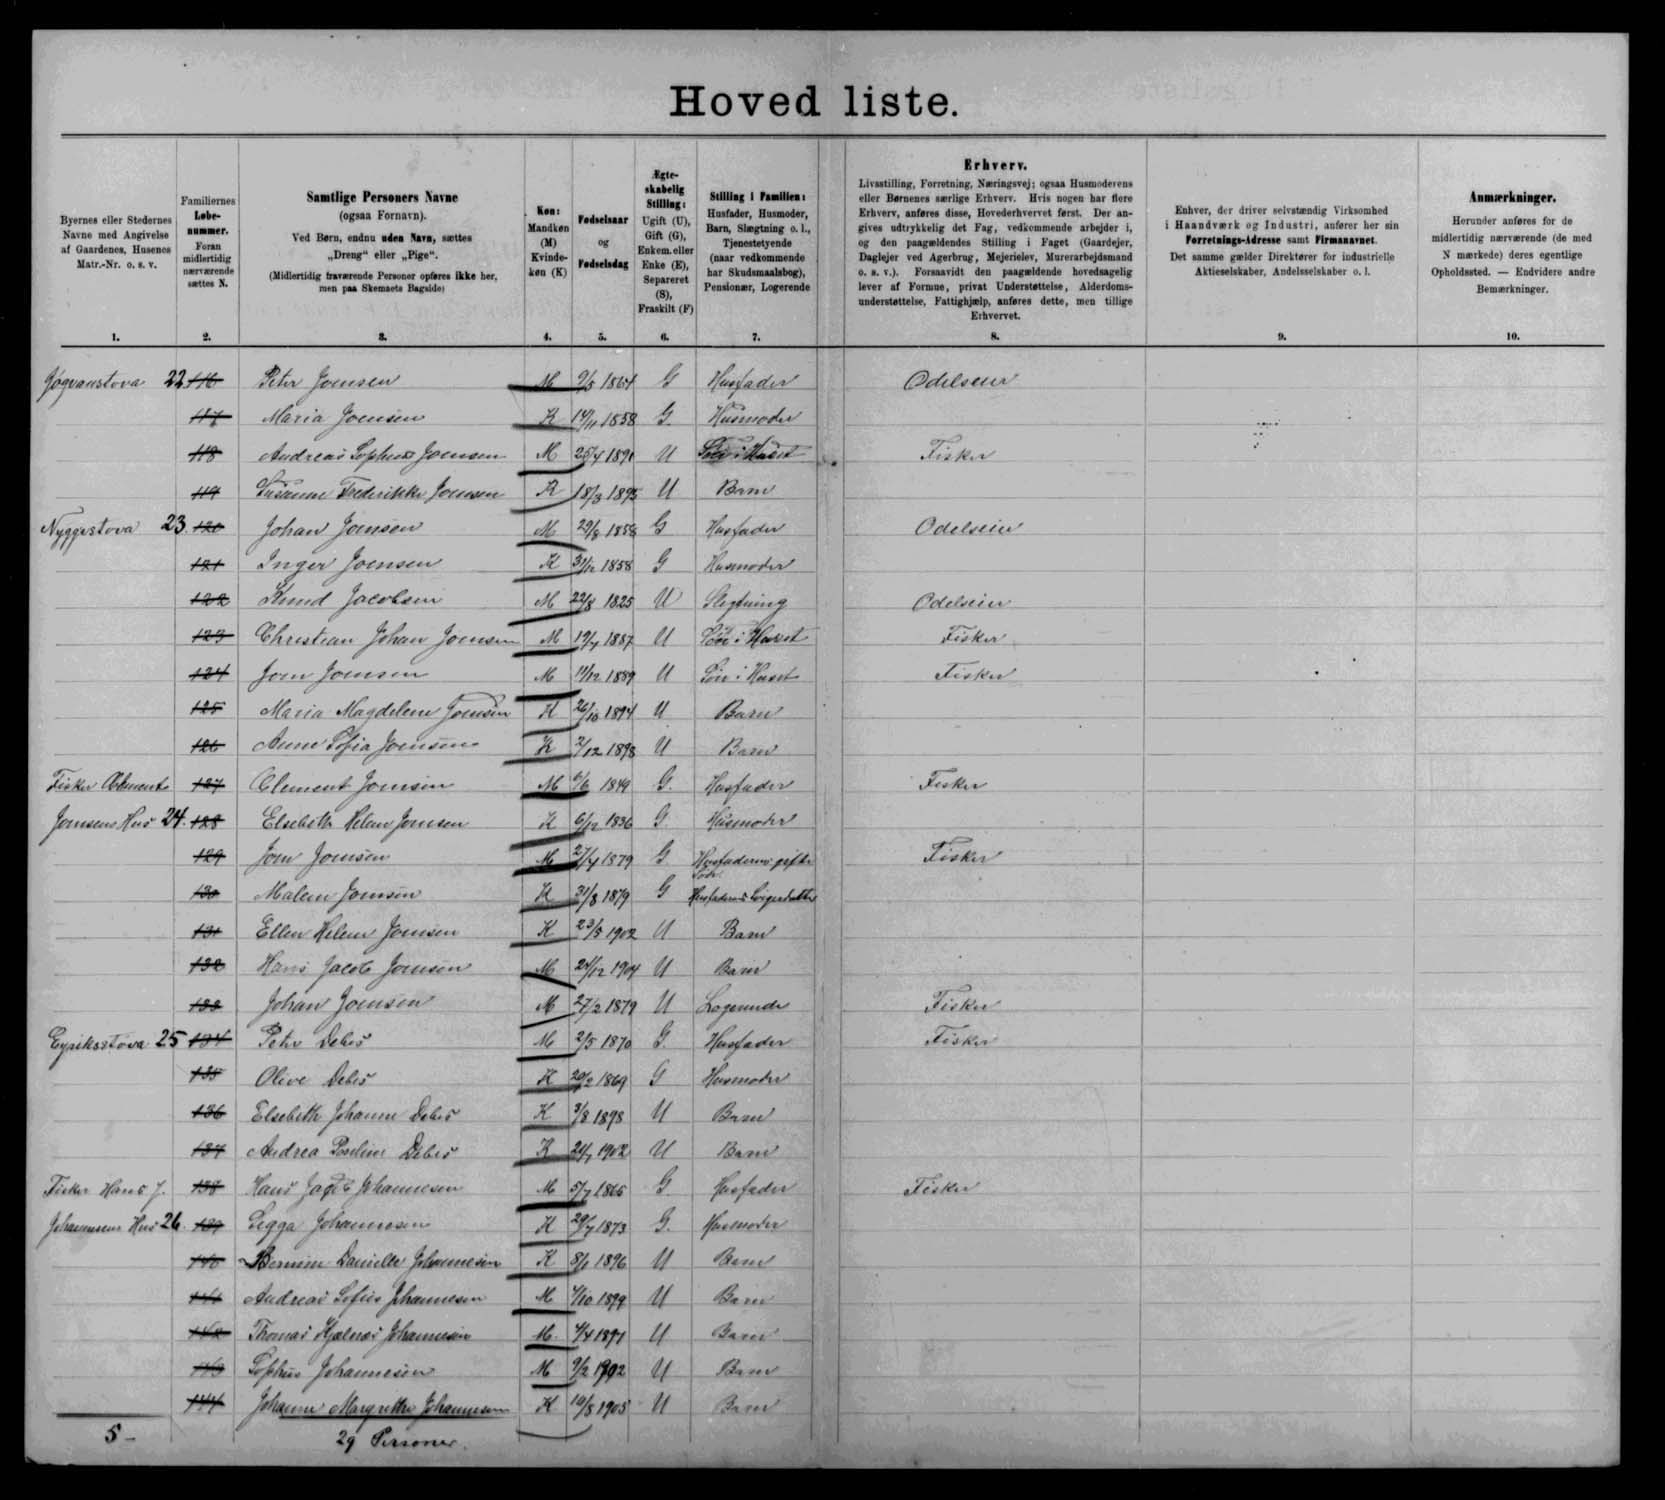 Hoved liste.
Byernes eller Stedernes
Navne med Angivelse
af Gaardenes, Husenes
Matr.-Nr. o. s. v.
Familiernes
Løbe-
nummer.
Foran
midlertidig
nærværende
sættes N.
Samtlige Personers Navne
(ogsaa Fornavn).
Ved Børn, endnu uden Navn, sættes
„Dreng“ eller „Pige“.
(Midlertidig fraværende Personer opføres ikke her,
men paa Skemaets Bagside)
Køn:
Mandkøn
(M)
Kvinde-
køn (K)
Fødselsaar
og
Fødselsdag
Ægte-
skabelig
Stilling:
Ugift (U),
Gift (G),
Enkem. eller
Enke (E),
Separeret
(S),
Fraskilt (F)
Stilling i Familien:
Husfader, Husmoder,
Barn, Slægtning o. l.,
Tjenestetyende
(naar vedkommende
har Skudsmaalsbog),
Pensionær, Logerende
Erhverv.
Livsstilling, Forretning, Næringsvej; ogsaa Husmoderens
eller Børnenes særlige Erhverv. Hvis nogen har flere
Erhverv, anføres disse, Hovederhvervet først. Der an-
gives udtrykkelig det Fag, vedkommende arbejder i,
og den paagældendes Stilling i Faget (Gaardejer,
Daglejer ved Agerbrug, Mejerielev, Murerarbejdsmand
o. s. v.). Forsaavidt den paagældende hovedsagelig
lever af Formue, privat Understøttelse, Alderdoms-
understøttelse, Fattighjælp, anføres dette, men tillige
Erhvervet.
Enhver, der driver selvstændig Virksomhed
i Haandværk og Industri, anfører her sin
Forretnings-Adresse samt Firmanavnet.
Det samme gælder Direktører for industrielle
Aktieselskaber, Andelsselskaber o. l.
Anmærkninger.
Herunder anføres for de
midlertidig nærværende (de med
N mærkede) deres egentlige
Opholdssted. — Endvidere andre
Bemærkninger.
1. 2. 3. 4. 5. 6. 7. 8. 9. 10.
Jógvanstova 22 116 Peter Joensen M 9/5 1864 G Husfader Odelseier
117 Maria Joensen K 14/11 1858 G. Husmoder
118 Andreas Sophus Joensen M 25/4 1891 U Søn i Huset Fisker
119 Susanne Frederikke Joensen K 18/3 1895 U Barn
Nyggjastova 23 120 Johan Joensen M 29/8 1858 G Husfader Odelseier
121 Inger Joensen K 31/12 1858 G Husmoder
122 Knud Jacobsen M 22/8 1825 U Slegtning Odelseier
123 Christian Johan Joensen M 19/7 1887 U Søn i Huset Fisker
124 Joen Joensen M 11/12 1889 U Søn i Huset Fisker
125 Maria Magdelene Joensen K 26/10 1894 U Barn
126 Anne Sofia Joensen K 2/12 1898 U Barn
Fisker Clements 127 Clement Joensen M 6/6 1849 G. Husfader Fisker
Joensens Hus 24. 128 Elsebeth Helene Joensen K 6/12 1836 G Husmoder
129 Joen Joensen M 27/4 1879 G Husfaderens gifte Søn Fisker
130 Malene Joensen K 31/8 1879 G Husfaderens Svigerdatter
131 Ellen Helene Joensen K 23/5 1902 U Barn
132 Hans Jacob Joensen M 24/12 1904 U Barn
133 Johan Joensen M 27/2 1879 U Logerende Fisker
Eyriksstova 25 134 Peter Debes M 2/5 1870 G. Husfader Fisker
135 Olive Debes K 20/2 1869 G Husmoder
136 Elsebeth Johanne Debes K 3/8 1898 U Barn
137 Andrea Pouline Debes K 24/1 1902 U Barn
Fisker Hans J. 138 Hans Jacob Johannesen M 5/7 1865 G. Husfader Fisker
Johannesens Hus 26. 139 Sigga Johannesen K 29/7 1873 G. Husmoder
140 Danielle Johannesen K 8/1 1896 U Barn
141 Andreas Sofus Johannesen M 4/10 1899 U Barn
142 Thomas Kjølnæs Johannesen M. 4/4 1891 U Barn
143 Sophus Johannesen M 9/2 1902 U Barn
144 Johanne Margrethe Johannesen K 10/8 1905 U Barn
5 - 29 Personer.